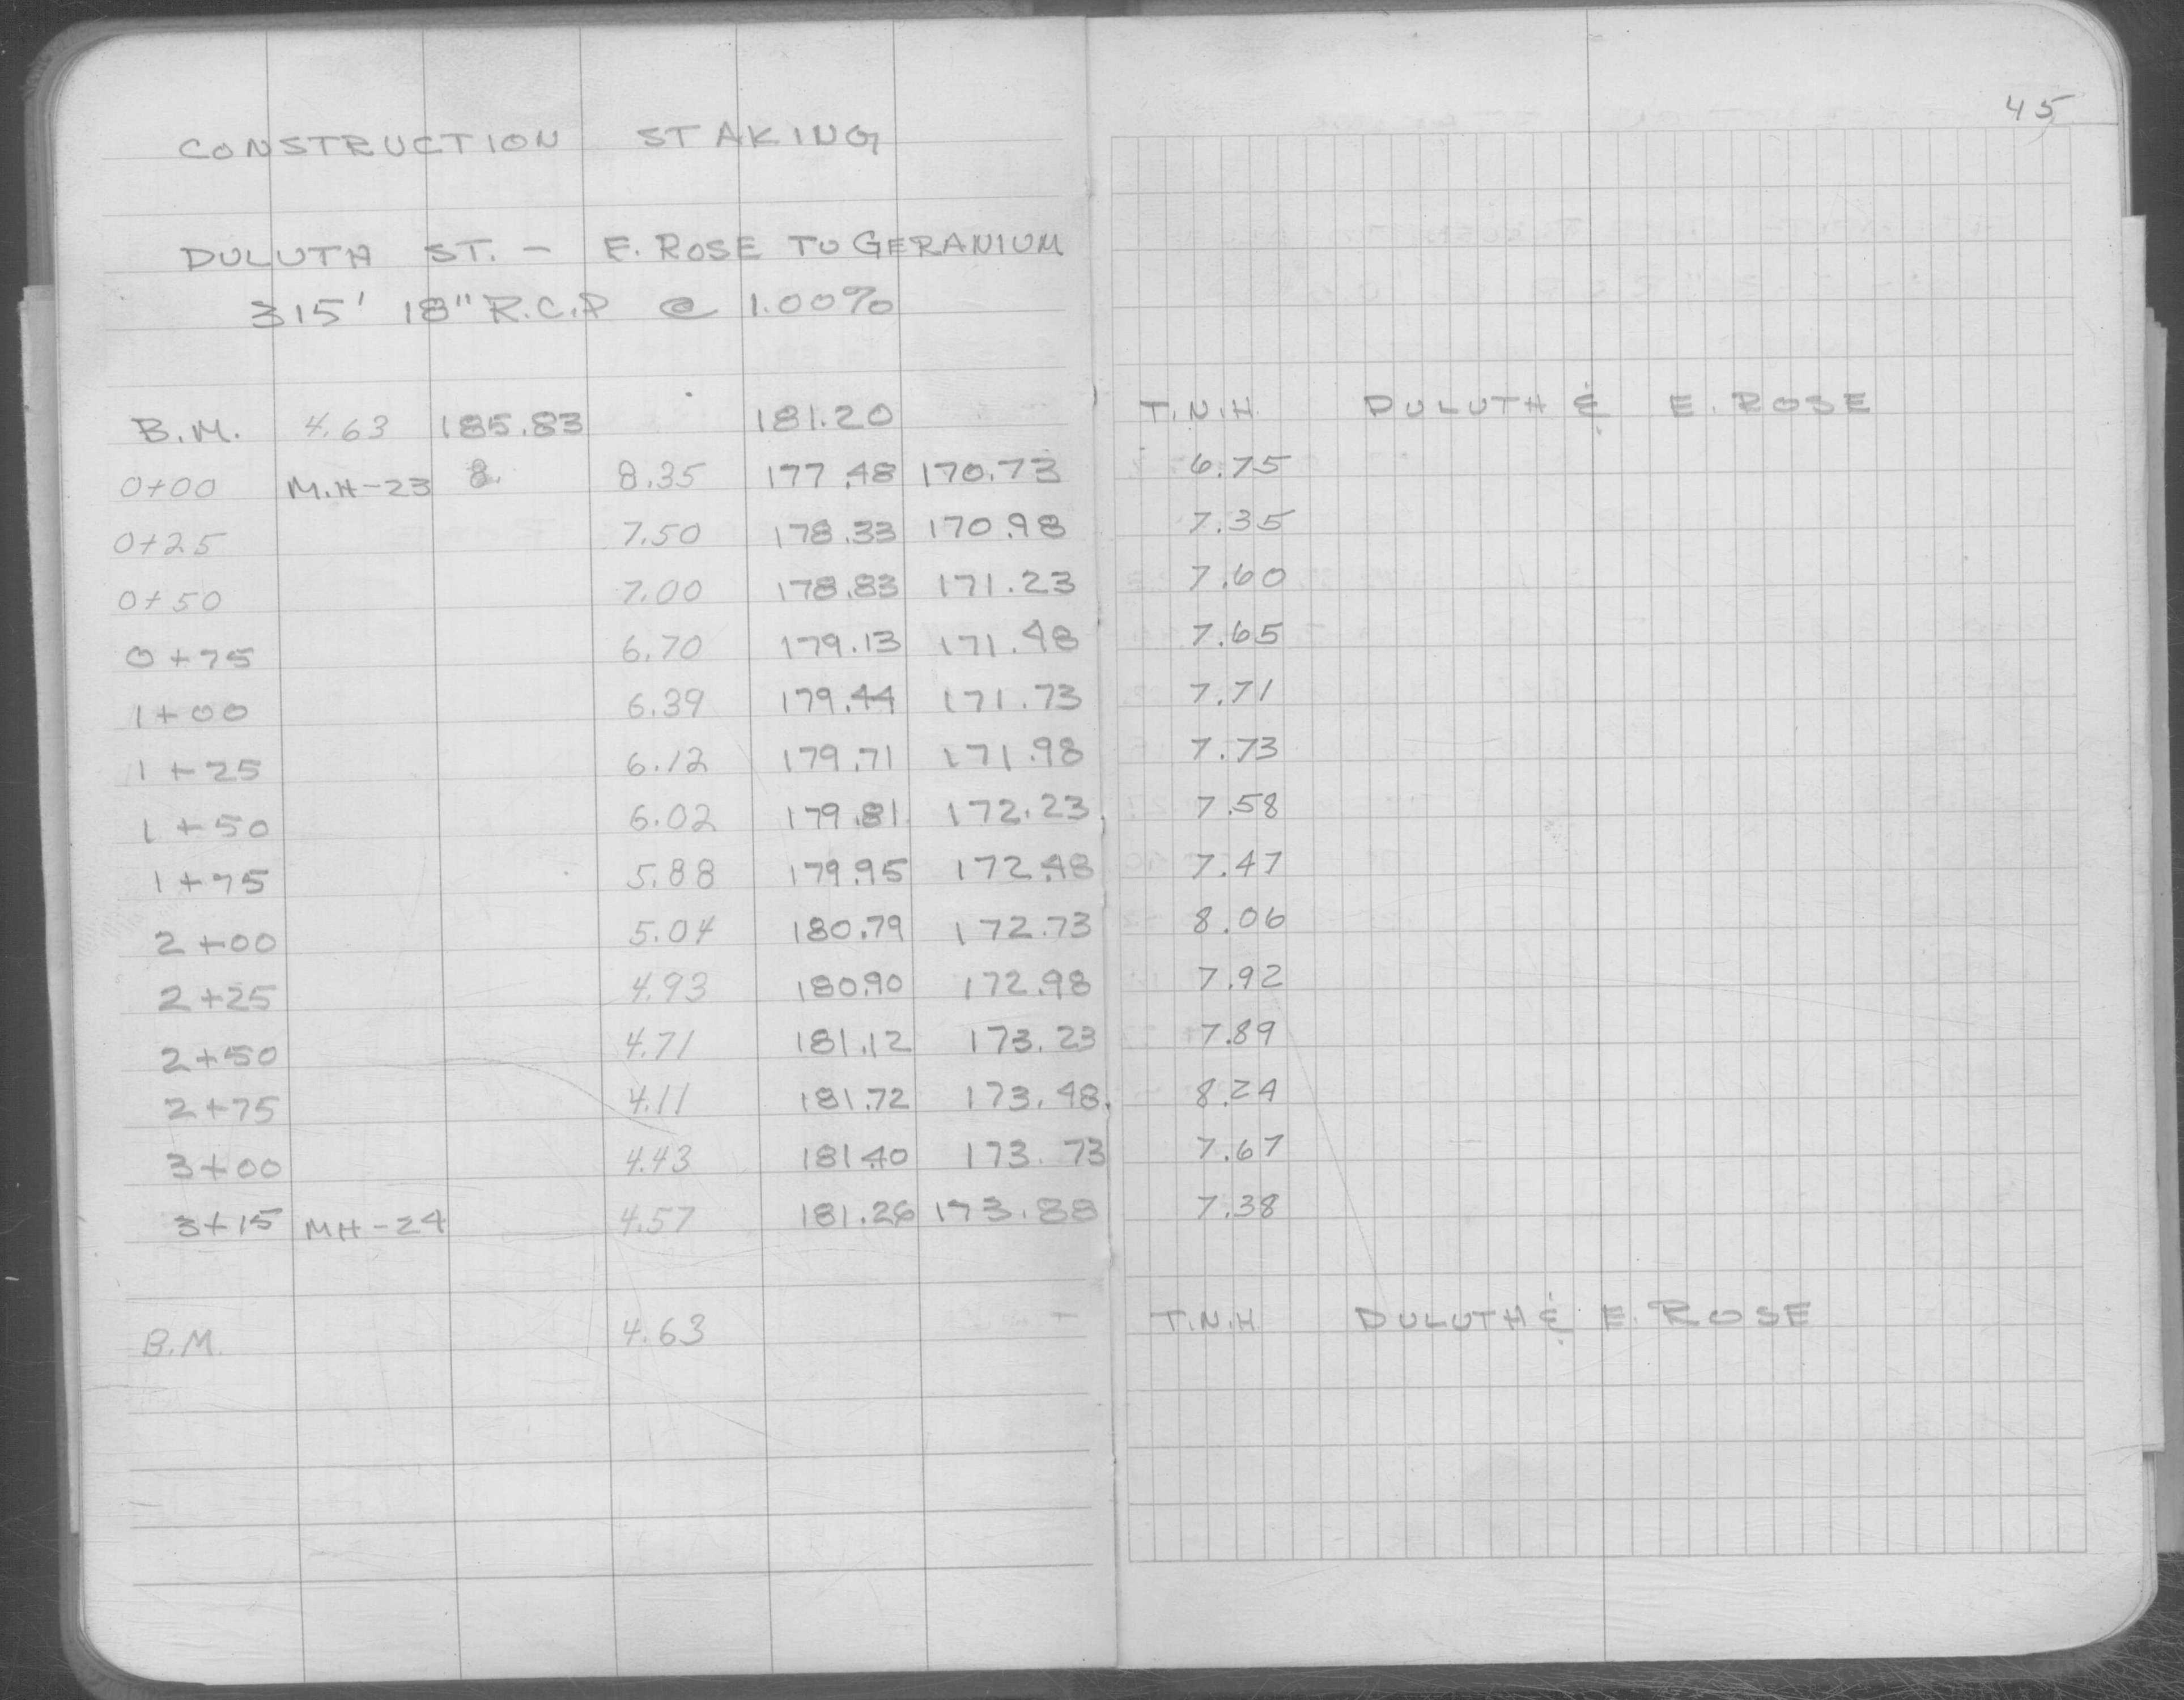 45
CONSTRUCTION STAKING
DULUTH ST. - E. ROSE TO GERANIUM
315' 18" R.C.P @ 1.00%
B.M. 4.63 185.83 181.20 T.N.H. DULUTH & E. ROSE
0+00 M.H-23 8. 8.35 177.48 170.73 6.75
0+25 7.50 178.33 170.98 7.35
0+50 7.00 178.83 171.23 7.60
0+75 6.70 179.13 171.48 7.65
1+00 6.39 179.44 171.73 7.71
1+25 6.12 179.71 171.98 7.73
1+50 6.02 179.81 172.23 7.58
1+75 5.88 179.95 172.48 7.47
2+00 5.04 180.79 172.73 8.06
2+25 4.93 180.90 172.98 7.92
2+50 4.71 181.12 173.23 7.89
2+75 4.11 181.72 173.48 8.24
3+00 4.43 181.40 173.73 7.67
3+15 MH-24 4.57 181.26 173.88 7.38
B.M. 4.63 T.N.H DULUTH & E. ROSE